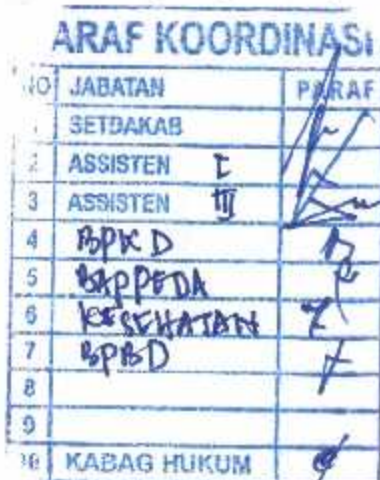 ARAF KOORDINASI
NO JABATAN PARAF
SETDAKAB
2 ASSISTEN I
3 ASSISTEN III
4 BPKD
5 BAPPEDA
6 KESEHATAN
7 BPBD
8
9
10 KABAG HUKUM